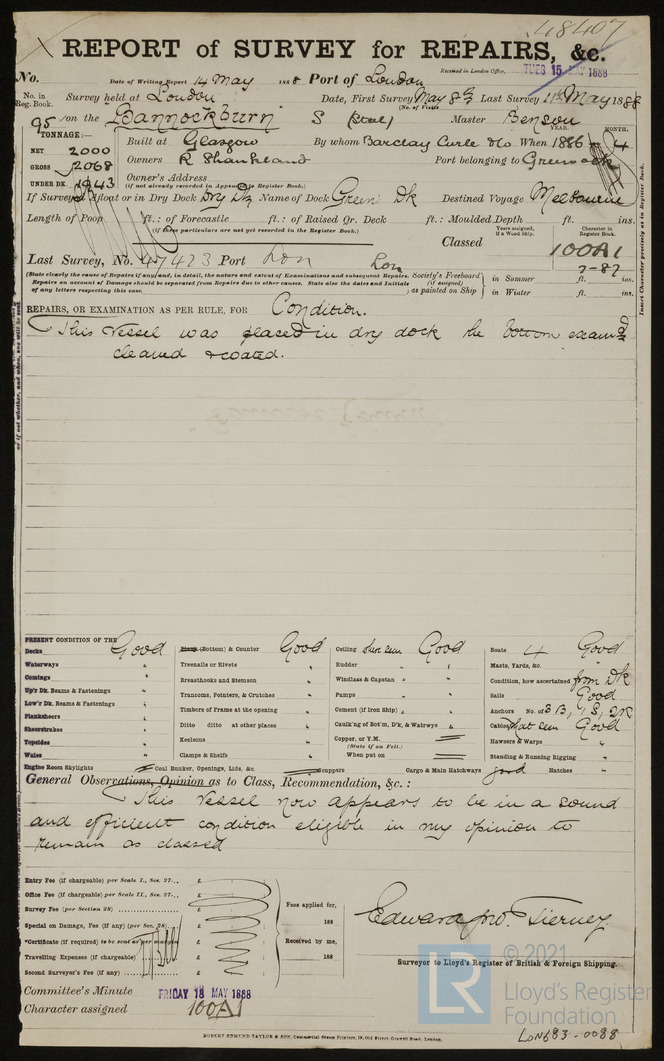 48407
REPORT of SURVEY for REPAIRS, &c.
No. Date of Writing Report 14 May 1888 Port of London Received in London Office, TUES 15 MAY 1888
No. in Reg. Book. Survey held at London Date, First Survey May 8th Last Survey 11th May 1888
(No. of Visits
95 on the Bannockburn S (Steel) Master Benson
TONNAGE:— Built at Glasgow By whom Barclay Curle & Co. When 1886 YEAR. MONTH. 4
NET 2000
GROSS 2068 Owners R Shankland Port belonging to Greenock
UNDER DK. 1943 Owner's Address
(if not already recorded in Appendix to Register Book.)
If Surveyed Afloat or in Dry Dock Dry Dk Name of Dock Green Dk Destined Voyage Melbourne
Length of Poop ft.: of Forecastle ft.: of Raised Qr. Deck ft.: Moulded Depth ft. ins.
(if these particulars are not yet recorded in the Register Book.)
Years assigned, if a Wood Ship. Character in Register Book.
Classed 100A1
Last Survey, No. 47423 Port Lon Lon 7-87
(State clearly the cause of Repairs if any; and, in detail, the nature and extent of Examinations and subsequent Repairs.
Repairs on account of Damage should be separated from Repairs due to other causes. State also the dates and Initials
of any letters respecting this case.
Society's Freeboard (if assigned) as painted on Ship in Summer ft. ins.
in Winter ft. ins.
Insert Character precisely as in Register Book.
REPAIRS, OR EXAMINATION AS PER RULE, FOR Condition.
This Vessel was placed in dry dock the bottom exam'd
cleaned & coated.
PRESENT CONDITION OF THE
Decks Good
Waterways "
Comings "
Up'r Dk. Beams & Fastenings "
Low'r Dk. Beams & Fastenings "
Planksheers "
Sheerstrakes "
Topsides "
Wales "
Engine Room Skylights
(Bottom) & Counter Good
Treenails or Rivets "
Breasthooks and Stemson "
Transoms, Pointers, & Crutches "
Timbers of Frame at the opening "
Ditto ditto at other places "
Keelsons "
Clamps & Shelfs "
Coal Bunker, Openings, Lids, &c.
Ceiling where seen Good
Rudder "
Windlass & Capstan "
Pumps "
Cement (if Iron Ship) "
Caulk'ng of Bot'm, D'k, & Watrwys "
Copper, or Y.M.
(State if on Felt.)
When put on
Scuppers
Cargo & Main Hatchways good Hatches "
Boats 4 Good
Masts, Yards, &c. "
Condition, how ascertained from Dk
Sails Good
Anchors No. of 3 B, 1 S, 2 K
Cables that seen Good
Hawsers & Warps "
Standing & Running Rigging "
General Observations, Opinion as to Class, Recommendation, &c. :
This Vessel now appears to be in a sound
and efficient condition eligible in my opinion to
remain as classed
Entry Fee (if chargeable) per Scale I., Sec. 27... £
Office Fee (if chargeable) per Scale II., Sec. 27... £
Survey Fee (per Section 28) £
Special on Damage, Fee (if any) (per Sec. 28) £
*Certificate (if required) to be sent as per margin £
Travelling Expenses (if chargeable) £
Second Surveyor's Fee (if any) £
Fees applied for, 188
Received by me, 188
Edward Jno. Tierney
Surveyor to Lloyd's Register of British & Foreign Shipping.
Committee's Minute FRIDAY 18 MAY 1888
Character assigned 100A1
LR © 2021
Lloyd's Register
Foundation
ROBERT EDMUND TAYLOR & SON, Commercial Steam Printers, 19, Old Street, Goswell Road, London.
LON683-0088